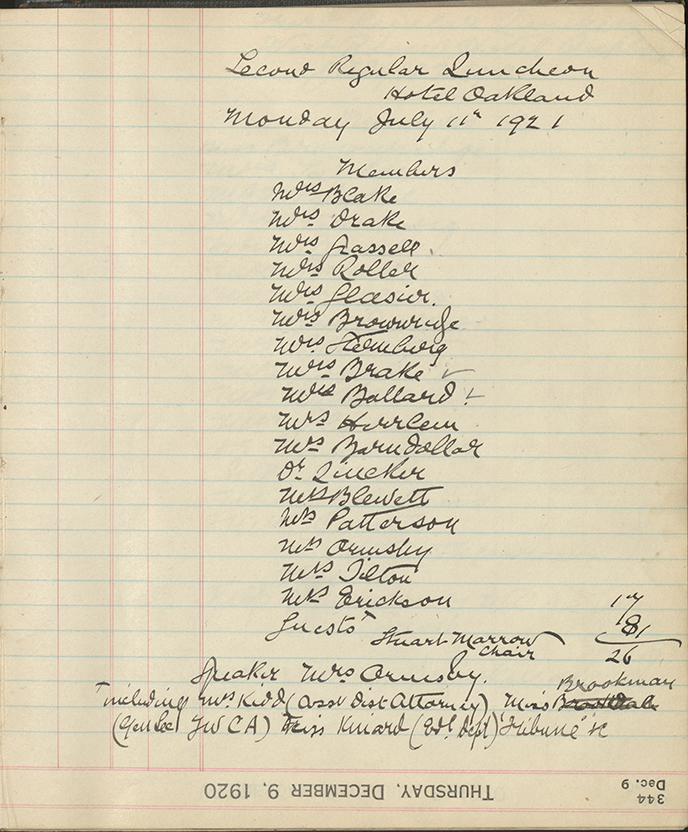 Second Regular Luncheon
Hotel Oakland
Monday July 11th 1921
Members
Mrs Blake
Mrs Drake
Mrs Grassell
Mrs Roller
Mrs Glasier.
Mrs Brownridge
Mrs.
Mrs Brake ✓
Mrs Ballard ✓
Mrs Herrlein
Mrs Barndollar
Dr Lineker
Mrs Blewett
Mrs Patterson
Mrs Ormsby
Mrs Tilton
Mrs Erickson 17
Guests 8
Stuart Marrow 1
Chair 26
Speaker Mrs Ormsby.
Brookman
including Mrs Kidd (Asst Dist Attorney) Miss
(Gen Sec YWCA) Miss Kinard (Ed. Dept) Tribune &c
THURSDAY, DECEMBER 9, 1920
344
Dec. 9